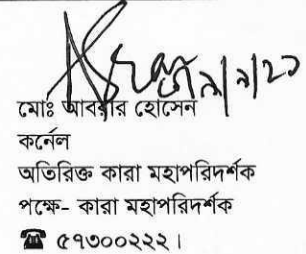 ৯/৯/২১
মোঃ আবরার হোসেন
কর্নেল
অতিরিক্ত কারা মহাপরিদর্শক
পক্ষে- কারা মহাপরিদর্শক
☎ ৫৭৩০০২২২।